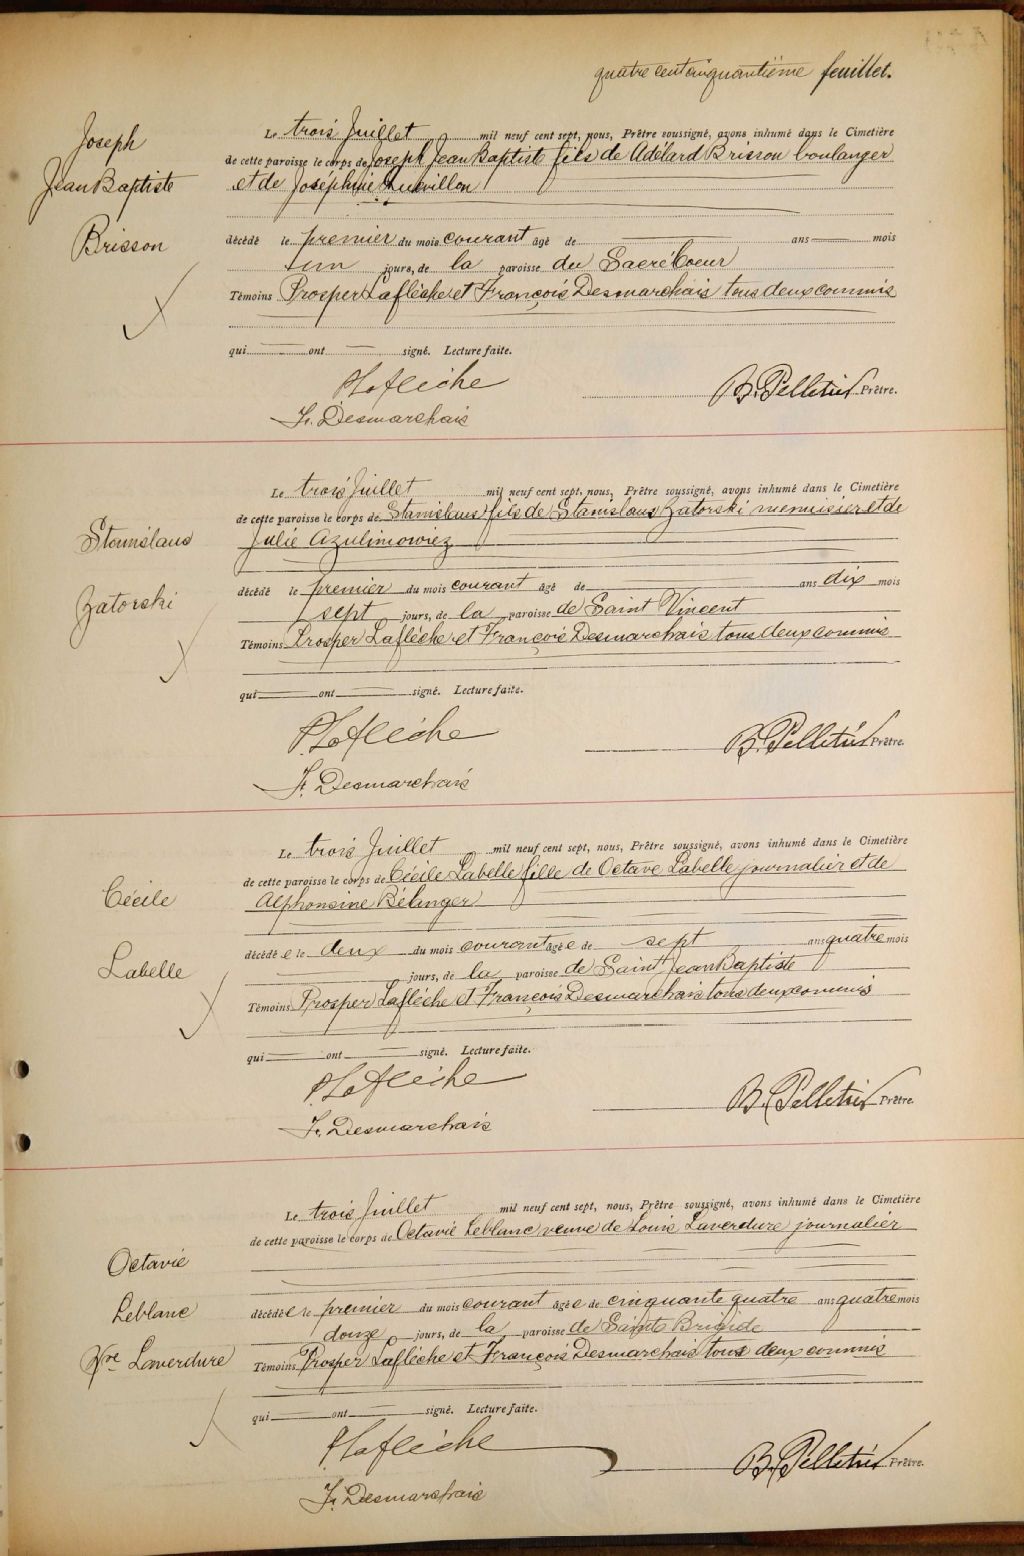 quatre cent cinquantième feuillet.
Joseph
Jean Baptiste
Brisson
Le trois Juillet mil neuf cent sept, nous, Prêtre soussigné, avons inhumé dans le Cimetière
de cette paroisse le corps de Joseph Jean Baptiste fils de Adélard Brisson boulanger
et de Joséphine Quevillon
décédé le premier du mois courant âgé de ans mois
un jours, de la paroisse du Sacré Coeur
Témoins Prosper Laflèche et François Desmarchais tous deux commis
qui ont signé. Lecture faite.
P Laflèche
B. Pelletier Prêtre.
Fr. Desmarchais
Stanislaus
Zatorski
Le trois Juillet mil neuf cent sept, nous, Prêtre soussigné, avons inhumé dans le Cimetière
de cette paroisse le corps de Stanislaus fils de Stanislaus Zatorski menuisier et de
Julie Azulmowiez
décédé le premier du mois courant âgé de ans dix mois
sept jours, de la paroisse de Saint Vincent
Témoins Prosper Laflèche et François Desmarchais tous deux commis
qui ont signé. Lecture faite.
P. Laflèche
B. Pelletier Prêtre.
Fr. Desmarchais
Cécile
Labelle
Le trois Juillet mil neuf cent sept, nous, Prêtre soussigné, avons inhumé dans le Cimetière
de cette paroisse le corps de Cécile Labelle fille de Octave Labelle journalier et de
Alphonsine Bélanger
décédée le deux du mois courant âgée de sept ans quatre mois
jours, de la paroisse de Saint Jean Baptiste
Témoins Prosper Laflèche et François Desmarchais tous deux commis
qui ont signé. Lecture faite.
P. Laflèche
B. Pelletier Prêtre.
Fr. Desmarchais
Octavie
Leblanc
Vve Laverdure
Le trois Juillet mil neuf cent sept, nous, Prêtre soussigné, avons inhumé dans le Cimetière
de cette paroisse le corps de Octavie Leblanc veuve de Louis Laverdure journalier
décédée le premier du mois courant âgée de cinquante quatre ans quatre mois
douze jours, de la paroisse de Sainte Brigide
Témoins Prosper Laflèche et François Desmarchais tous deux commis
qui ont signé. Lecture faite.
P Laflèche
B. Pelletier Prêtre.
Fr. Desmarchais